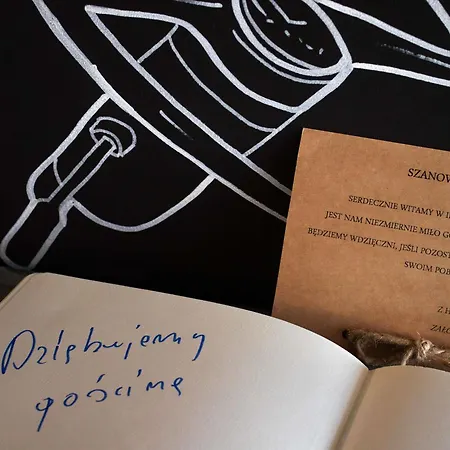 SZANOW
SERDECZNIE WITAMY W
JEST NAM NIEZMIERNIE MIŁO
BĘDZIEMY WDZIĘCZNI, JEŚLI POZOST
SWOIM POB
Z
ZAŁO
Dziękujemy
gościnę